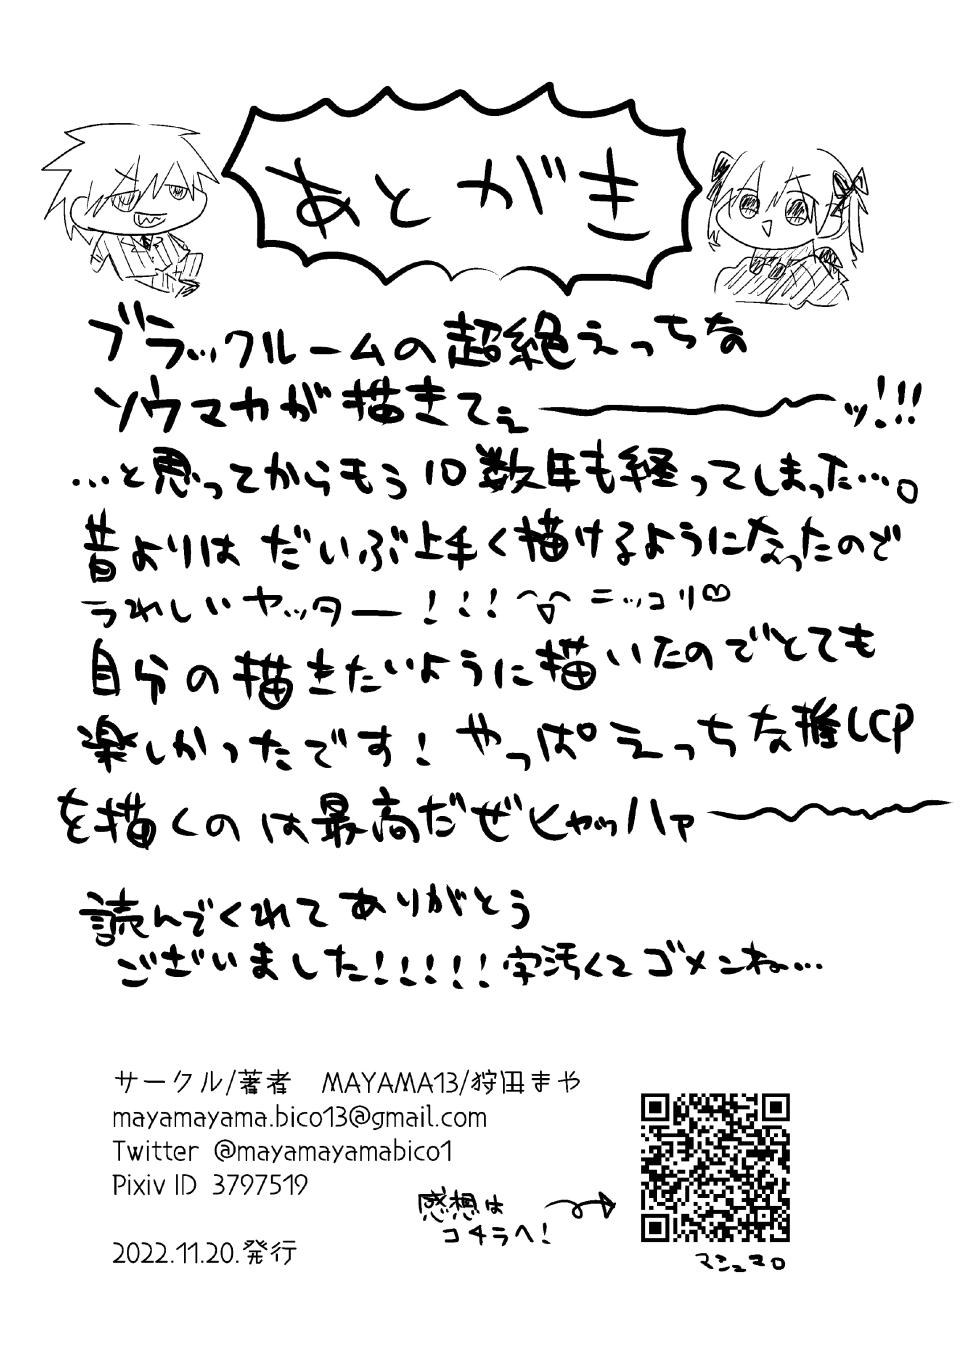 あとがき
ブラックルームの超絶えっちな
ソウマカが描きてぇ――ッ!!!
…と思ってからもう10数年も経ってしまった…。
昔よりは だいぶ上手く描けるようになったので
うれしいヤッター!!! ニッコリ♡
自分の描きたいように描いたのでとても
楽しかったです! やっぱえっちな推しCP
を描くのは最高だぜヒャッハァ――
読んでくれてありがとう
ございました!!!!! 字汚くてゴメンね…
サークル/著者 MAYAMA13/狩田まや
mayamayama.bico13@gmail.com
Twitter @mayamayamabico1
Pixiv ID 3797519
感想は
コチラへ!
2022.11.20.発行
マシュマロ